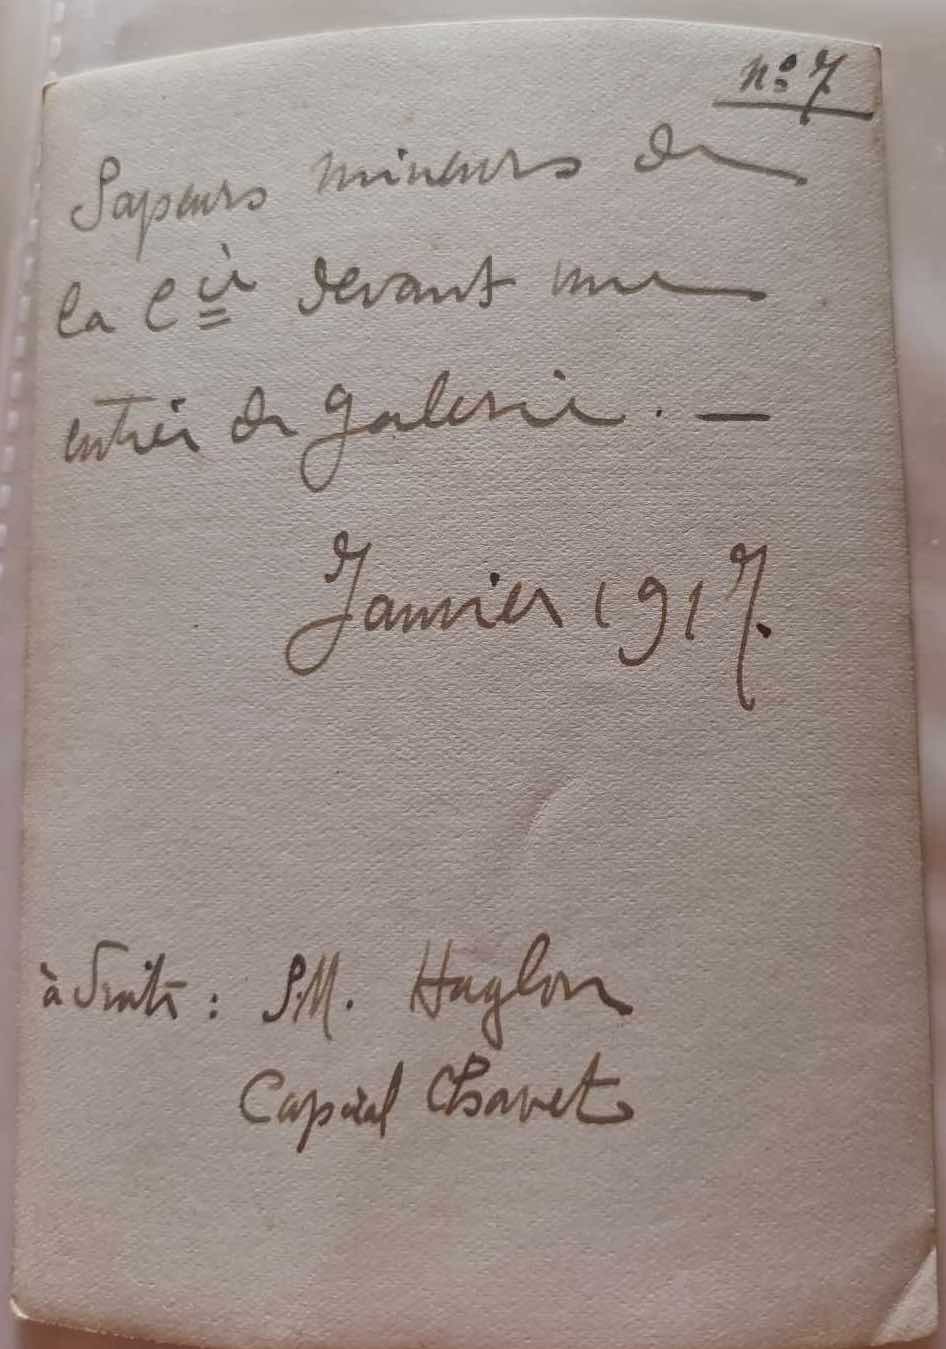 n° 7
Sapeurs mineurs de
la Cie devant une
entrée de galerie. —
Janvier 1917.
à droite : S.M. Huglon
Caporal Chavet